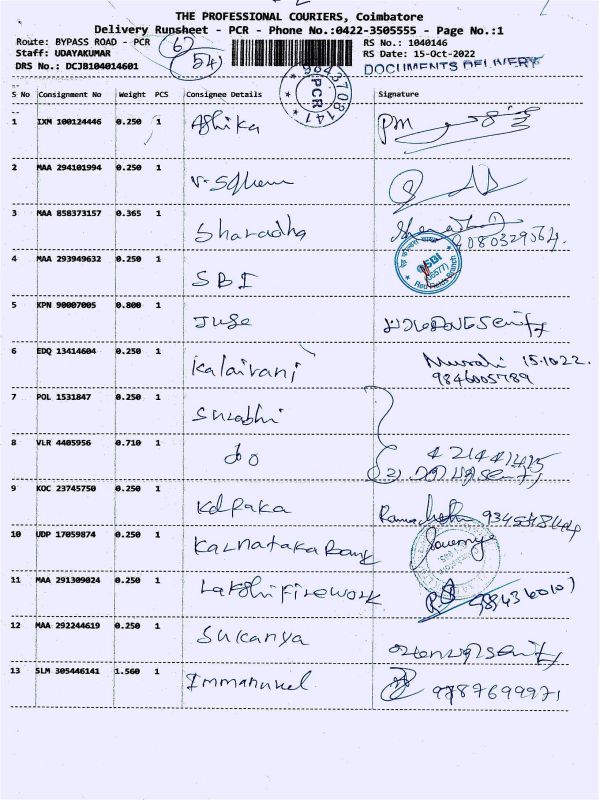 THE PROFESSIONAL COURIERS, Coimbatore
Delivery Runsheet - PCR - Phone No.:0422-3505555 - Page No.:1
Route: BYPASS ROAD - PCR 62 RS No.: 1040146
Staff: UDAYAKUMAR 54 RS Date: 15-Oct-2022
DRS No.: DCJB104014601 DOCUMENTS DELIVERY
9843708141
PCR
S No Consignment No Weight PCS Consignee Details Signature
1 IXM 100124446 0.250 1 Ashika PM
2 MAA 294101994 0.250 1
3 MAA 858373157 0.365 1 Sharadha
4 MAA 293949632 0.250 1 SBI
SBI
Red Fields Branch
5 KPN 90007005 0.800 1 Juse
6 EDQ 13414604 0.250 1 Kalaivani Murali 15.10.22.
9846005789
7 POL 1531847 0.250 1 Surabhi
8 VLR 4405956 0.710 1 do
9 KOC 23745750 0.250 1 Kalpaka
10 UDP 17059874 0.250 1 Karnataka Bank
11 MAA 291309024 0.250 1 Lakshi Firework
12 MAA 292244619 0.250 1 Sukanya
13 SLM 305446141 1.560 1 Immanuvel 9787699971